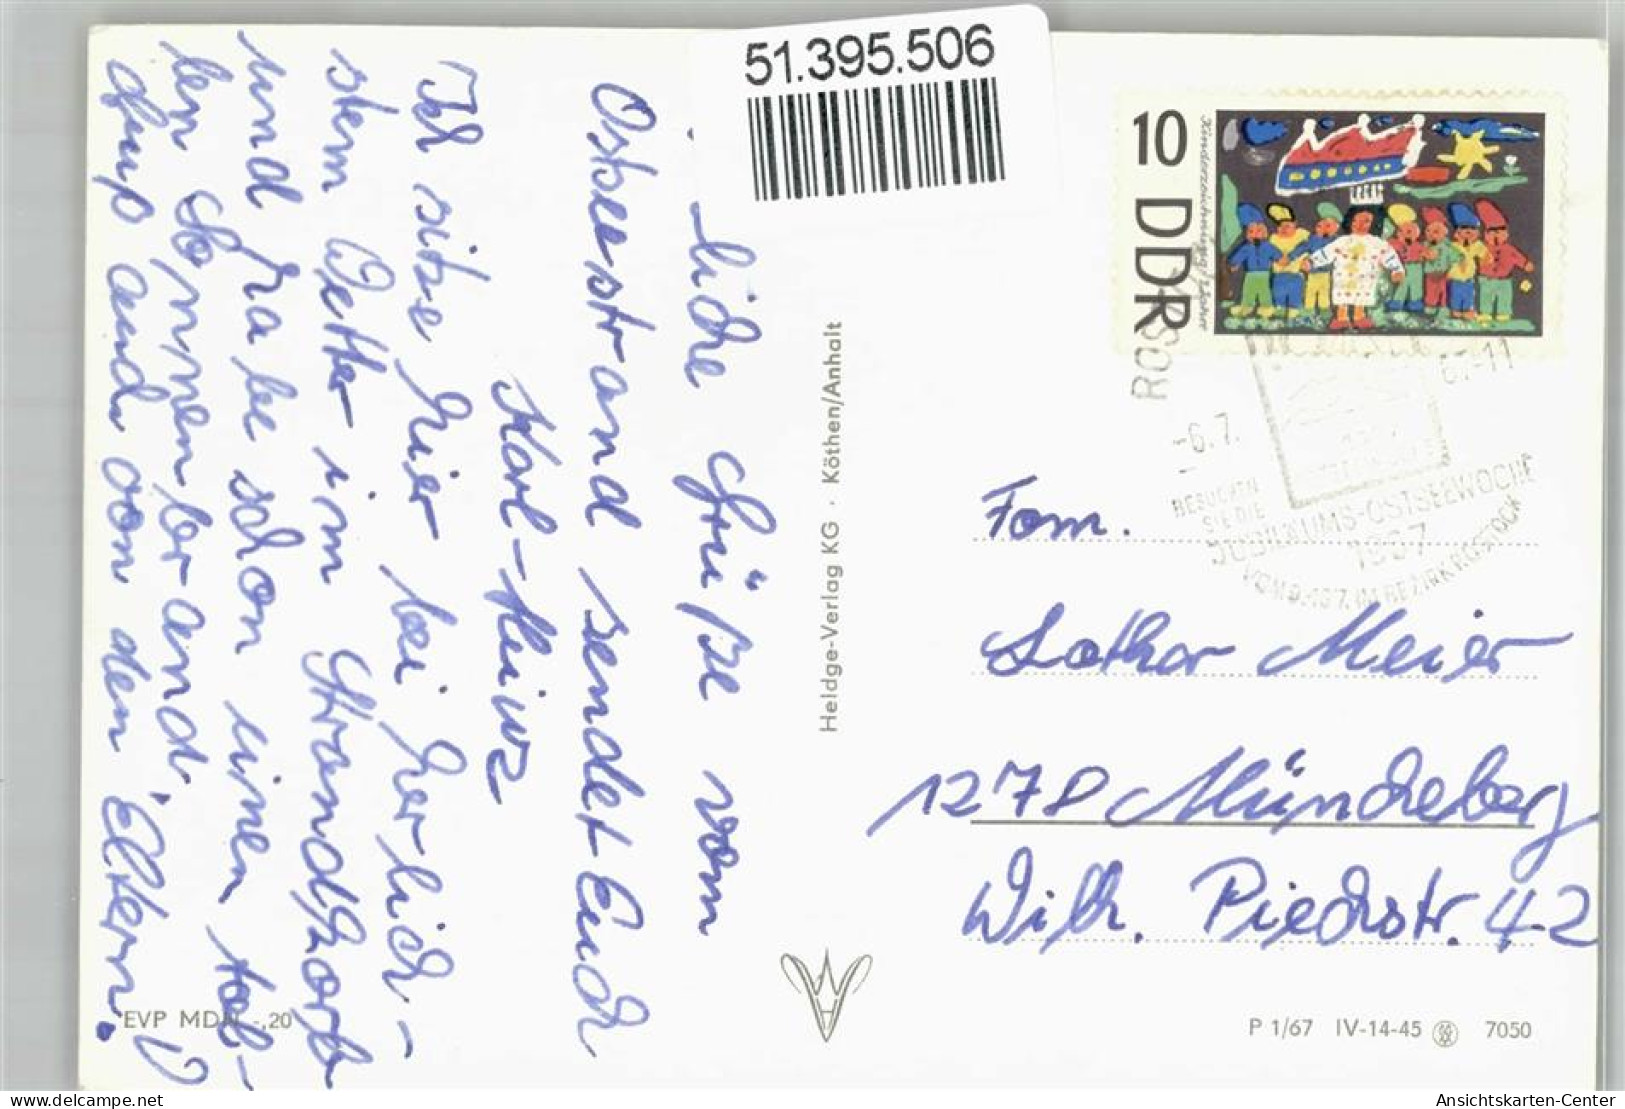 51.395.506
10 DDR
Kinderzeichnung
-6.7.
67-11
BESUCHEN
SIE DIE
JUBILÄUMS-OSTSEEWOCHE
1967
IM BEZIRK ROSTOCK
liche Grüße vom
Ostseestrand sendet Euch
Karl-Heinz
Ich sitze hier bei herlich-
stem Wetter im Strandkorb
und habe schon einen tol-
len Sonnenbrand.
Gruß auch von den Eltern!
Heldge-Verlag KG · Köthen/Anhalt
Fam.
Lothar Meier
1278 Müncheberg
Wilh. Pieckstr. 42
EVP MDN -,20
P 1/67 IV-14-45 7050
akpool.co.uk
Ansichtskarten-Center